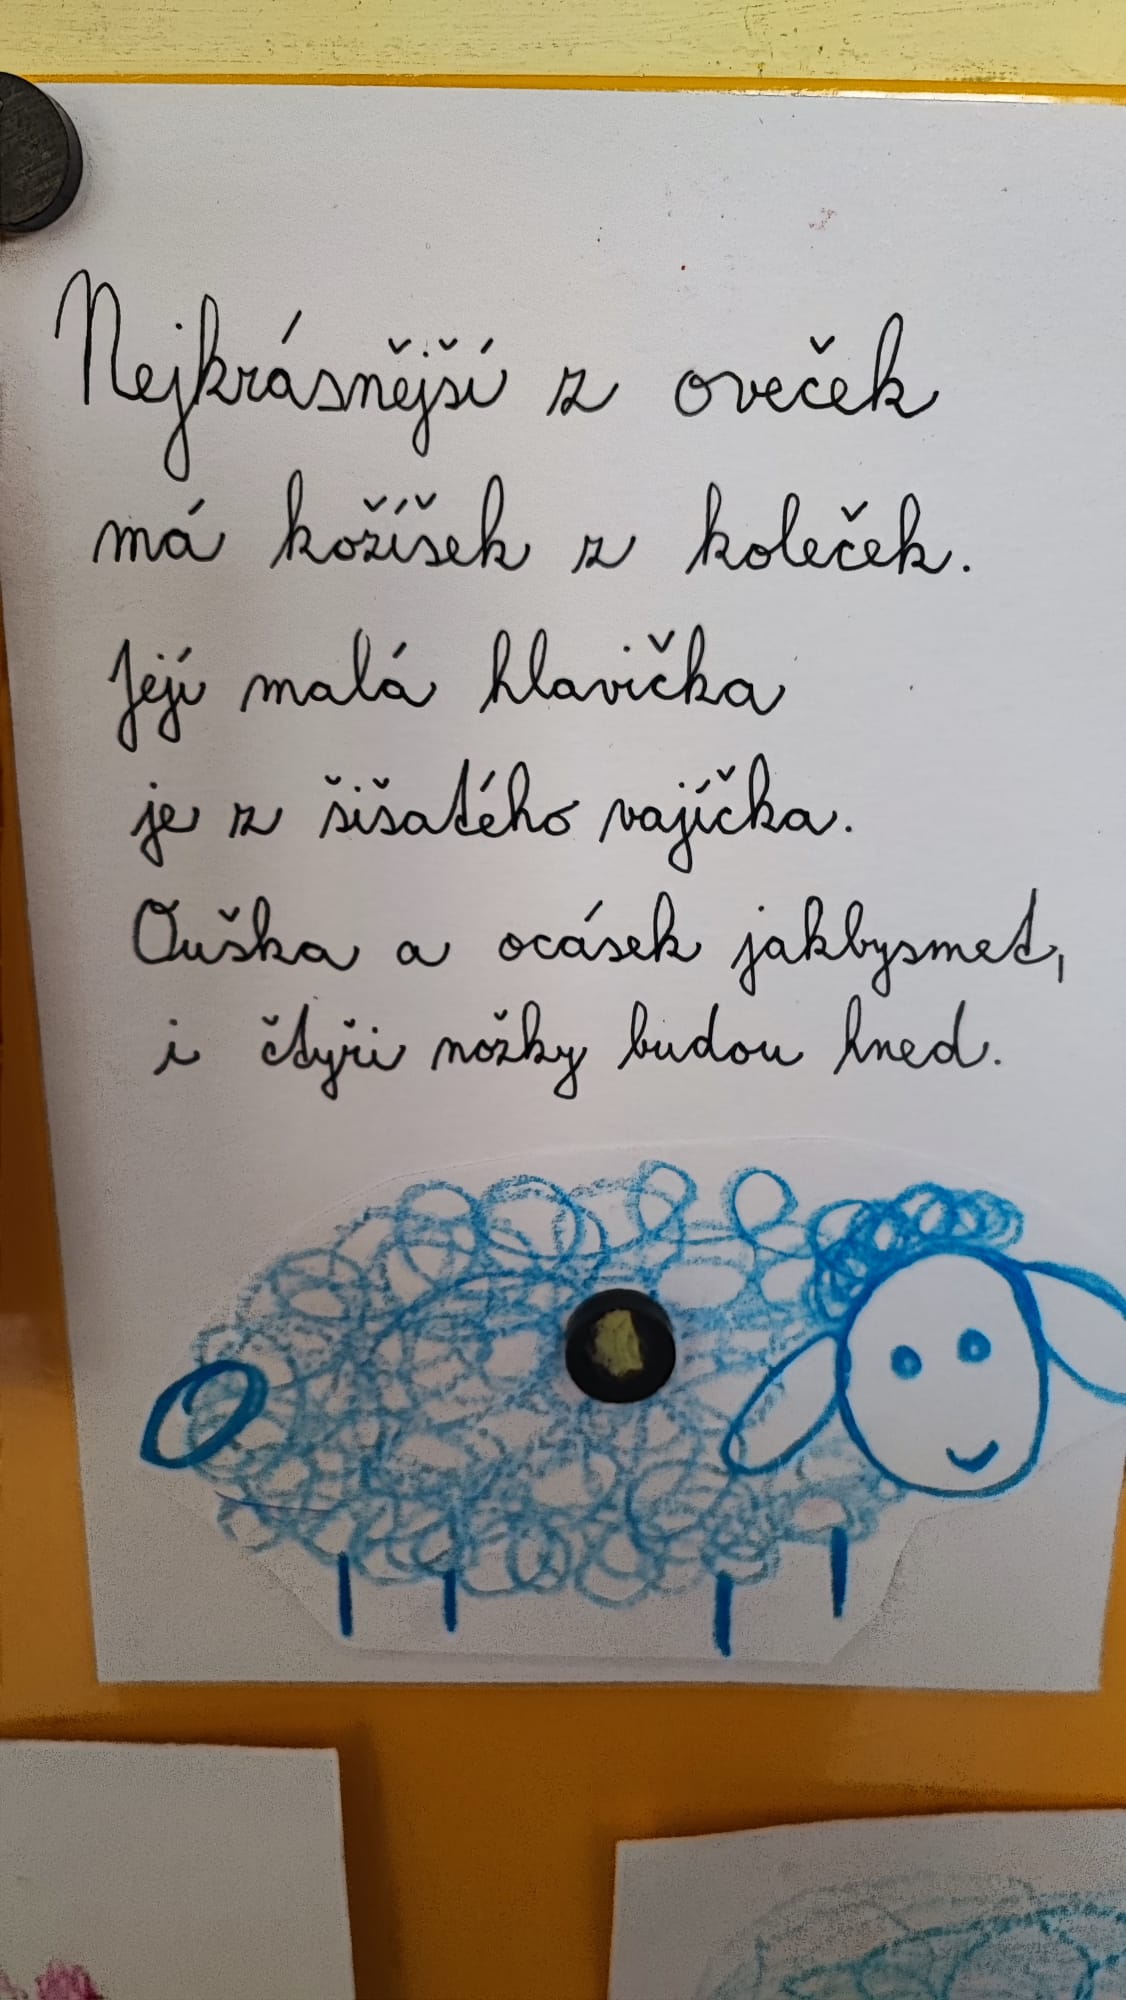 Nejkrásnější z oveček
má kožíšek z koleček.
Její malá hlavička
je z šišatého vajíčka.
Ouška a ocásek jakbysmet,
i čtyři nožky budou hned.